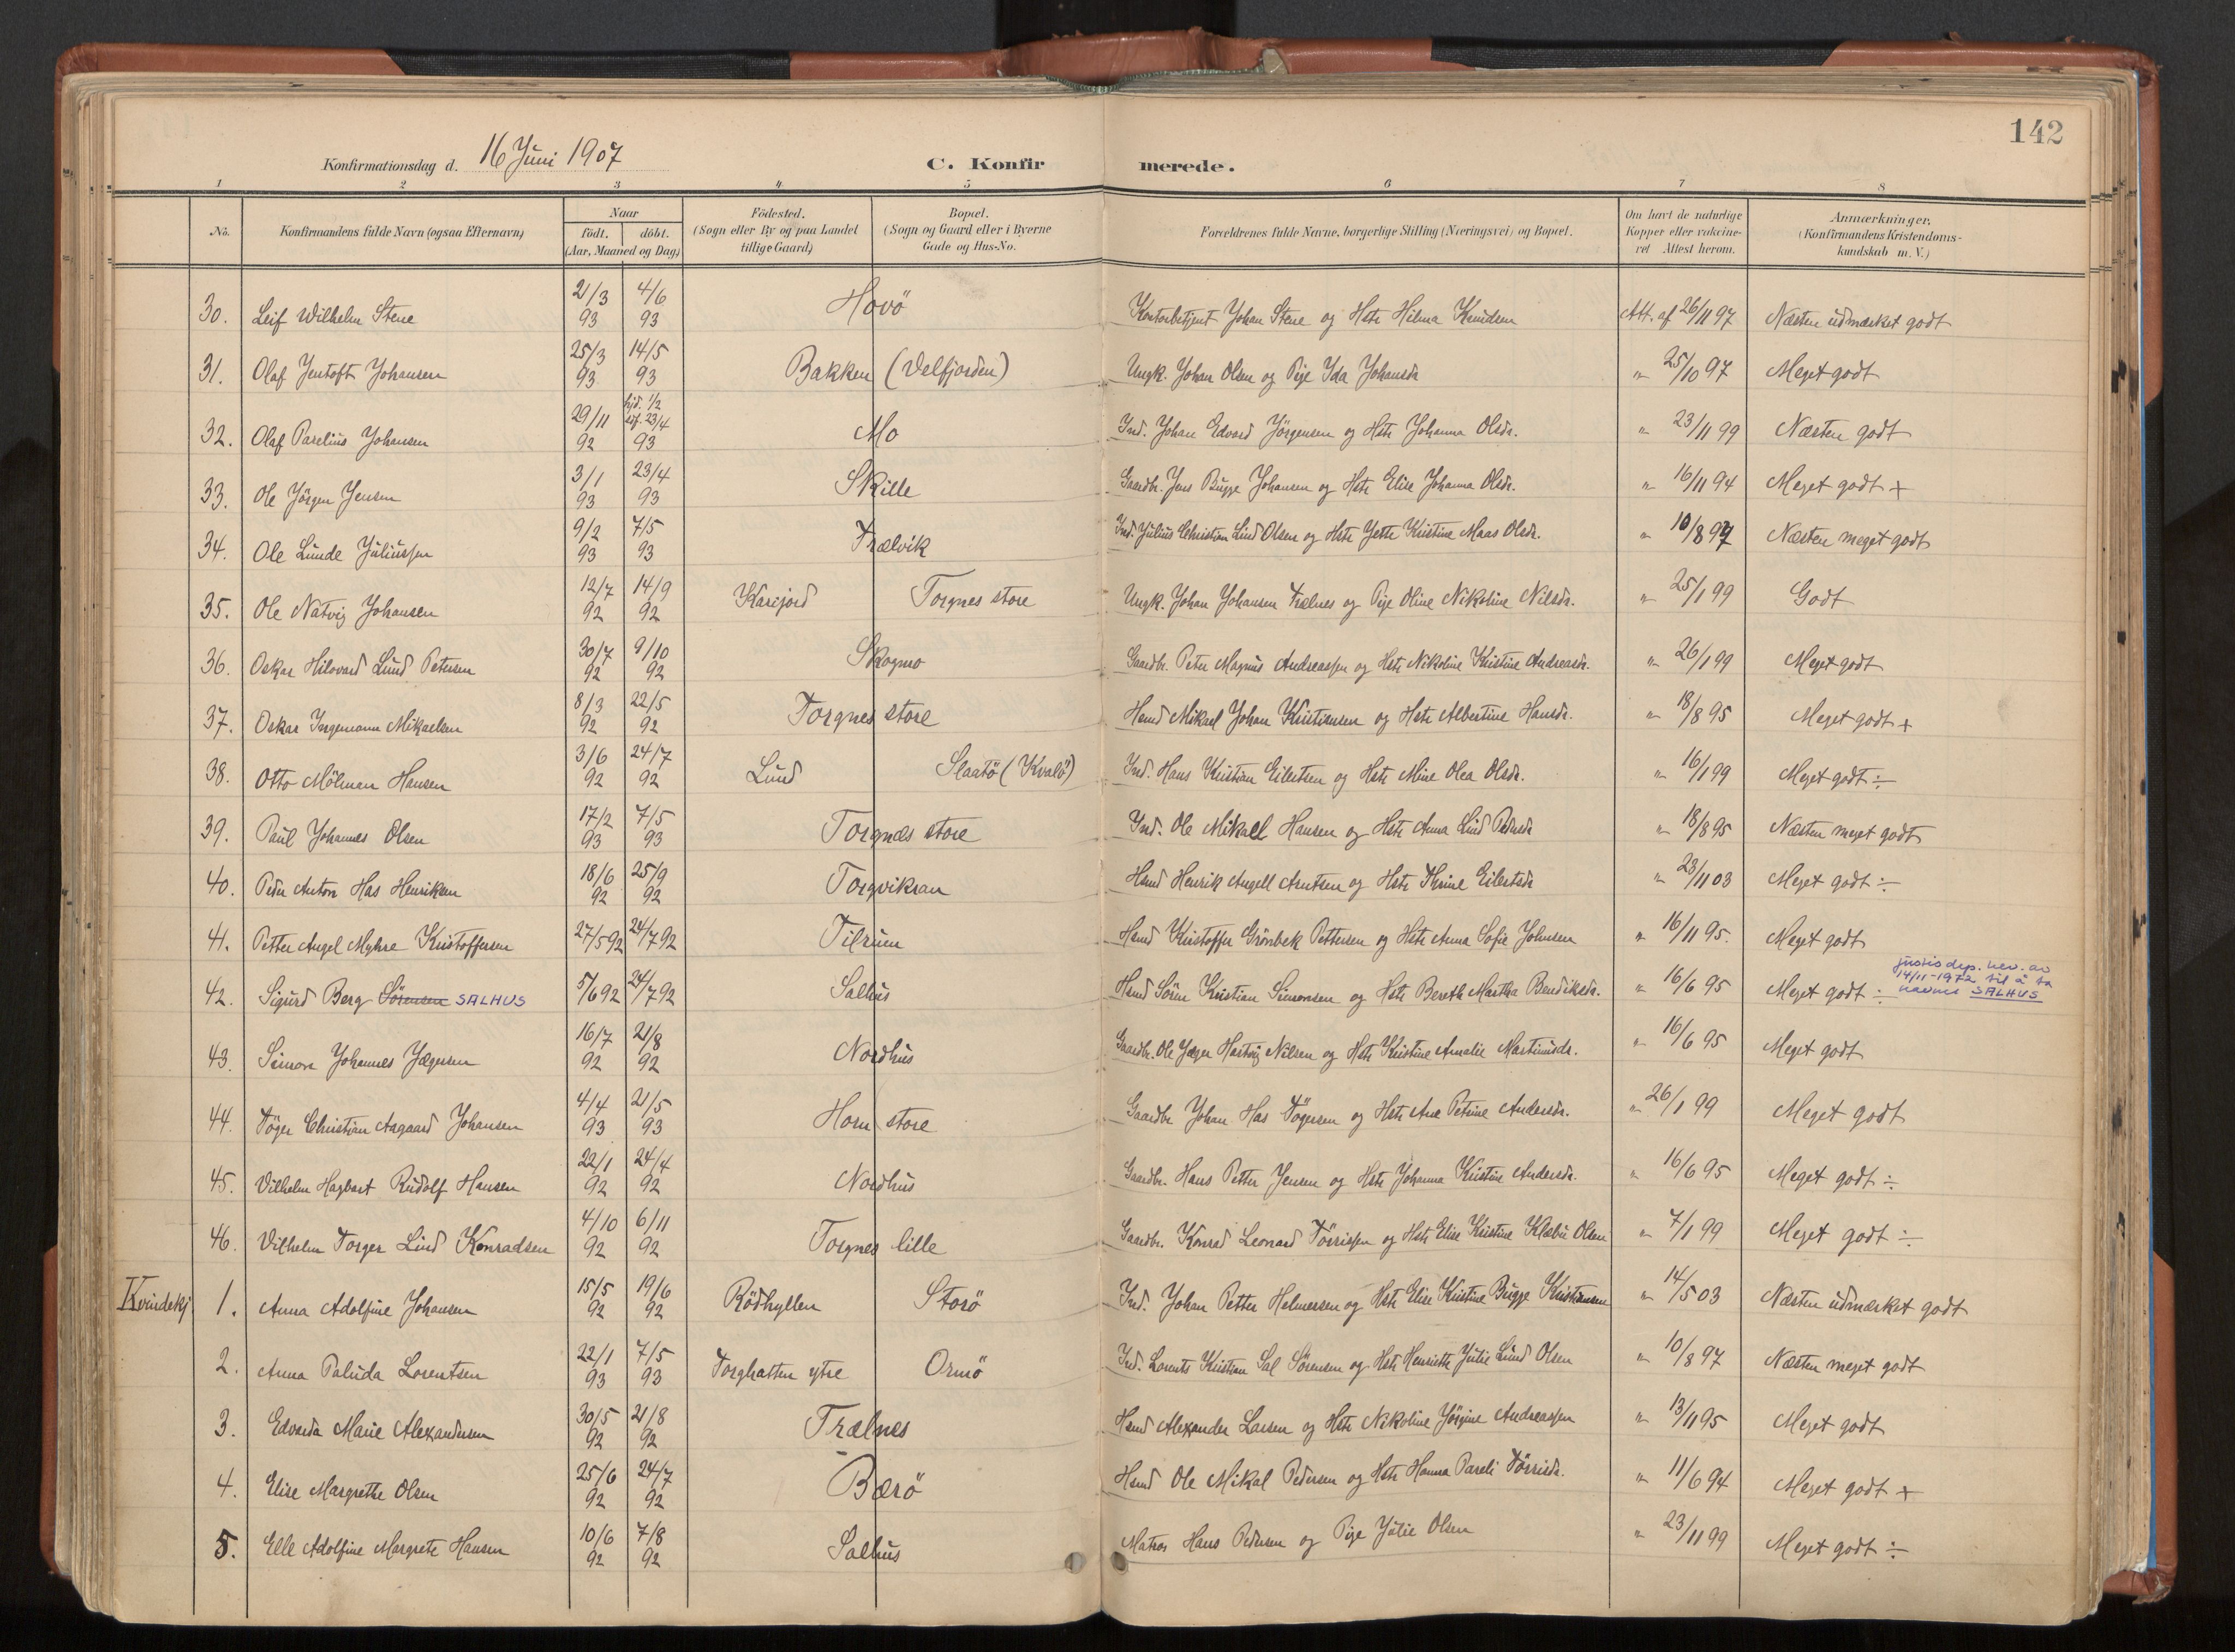 142
Konfirmationsdag d. 16 Juni 1907 C. Konfirmerede.
1 2 3 4 5 6 7 8
No. Konfirmandens fulde Navn (ogsaa Efternavn) Naar født. døbt. (Aar, Maaned og Dag) Fødested. (Sogn eller By og paa Landet tillige Gaard) Bopæl. (Sogn og Gaard eller i Byerne Gade og Hus-No. Forældrenes fulde Navne, borgerlige Stilling (Næringsvei) og Bopæl. Om havt de naturlige Kopper eller vakcineret Attest herom. Anmærkninger. (Konfirmandens Kristendomskundskab m. V.)
30. Leif Wilhelm Stene 21/3 93 4/6 93 Havö Kontorbetjent Johan Stene og Hstr Hilma Knudsen Att. af 26/11 97 Næsten udmærket godt
31. Olaf Jentoft Johansen 25/3 93 14/5 93 Bakken (Velfjorden) Ungk. Johan Olsen og Pige Ida Johansdr " 25/10 97 Meget godt
32. Olaf Parelius Johansen 29/11 92 hjd. 1/2 stf. 23/4 93 Mo Ind. Johan Edvard Jörgensen og Hstr Johanna Olsdr. " 23/11 99 Næsten godt
33. Ole Jörgen Jensen 3/1 93 23/4 93 Skille Gaardbr. Jens Bugge Johansen og Hstr Elise Johanna Olsdr. " 16/11 94 Meget godt +
34. Ole Lunde Juliussen 9/2 93 7/5 93 Trælvik Ind. Julius Christian Lind Olsen og Hstr Jette Kristine Maas Olsdr. " 10/8 97 Næsten meget godt
35. Ole Natvig Johansen 12/7 92 14/9 92 Karijord Torgnes store Ungk. Johan Johansen Trælnes og Pige Oline Nikoline Nilsdr. " 25/1 99 Godt
36. Oskar Hilovard Lund Petersen 30/7 92 9/10 92 Skogmo Gaardbr. Peter Magnus Andreassen og Hstr Nikoline Kristine Andreasdr. " 26/1 99 Meget godt
37. Oskar Ingemann Mikaelsen 8/3 92 22/5 92 Torgnes store Hsmd Mikael Johan Kristiansen og Hstr Albertine Hansdr. " 18/8 95 Meget godt +
38. Otto Mölman Hansen 3/6 92 24/7 92 Lund Slaatö (Kvalö) Ind. Hans Kristian Eilertsen og Hstr Mine Olea Olsdr. " 16/1 99 Meget godt ÷
39. Paul Johannes Olsen 17/2 93 7/5 93 Torgnæs store Ind. Ole Mikael Hansen og Hstr Anna Lind Pedersdr " 18/8 95 Næsten meget godt
40. Peder Anton Has Henriksen 18/6 92 25/9 92 Torgviksan Hsmd Henrik Angell Arntsen og Hstr Thrine Eilertsdr " 23/11 03 Meget godt ÷
41. Petter Angel Myhre Kristoffersen 27/5 92 24/7 92 Tilrum Hsmd Kristoffer Grönbek Pettersen og Hstr Anna Sofie Johnsen " 16/11 95. Meget godt
42. Sigurd Berg Sörensen SALHUS 5/6 92 24/7 92 Salhus Hsmd Sören Kristian Simonsen og Hstr Bereth Martha Bendiksdr. " 16/6 95 Meget godt ÷ justisdep. bev. av
14/11-1972 til å ta
navnet SALHUS
43. Simon Johannes Jægersen 16/7 92 21/8 92 Nordhus Gaardbr. Ole Jæger Hartvig Nilsen og Hstr Kristine Amalie Martinusdr. " 16/6 95 Meget godt
44. Töger Christian Aagaard Johansen 4/4 93 21/5 93 Horn store Gaardbr Johan Has Tögersen og Hstr Ane Petrine Andersdr. " 26/1 99 Meget godt
45. Vilhelm Hagbart Rudolf Hansen 22/1 92 24/4 92 Nordhus Gaardbr. Hans Petter Jensen og Hstr Johanna Kristine Andersdr. " 16/6 95 Meget godt ÷
46. Vilhelm Torger Lind Konradsen 4/10 92 6/11 92 Torgnes lille Gaardbr. Konrad Leonard Törrissen og Hstr Elise Kristine Klæbu Olsen " 7/1 99 Meget godt ÷
Kvindekj. 1. Anna Adolfine Johansen 15/5 92 19/6 92 Rödhyllen Storö Ind. Johan Petter Helmersen og Hstr Elise Kristine Bugge Kristiansen " 14/5 03 Næsten udmærket godt
2. Anna Paluda Lorentsen 22/1 93 7/5 93 Torghatten ytre Ormö Ind. Lorents Kristian Sal Sörensen og Hstr Henriette Julie Lund Olsen " 10/8 97 Næsten meget godt
3. Edvarda Marie Alexandersen 30/5 92 21/8 92 Trælnes Hsmd Alexander Larsen og Hstr Nikoline Jörgine Andreassen " 13/11 95 Meget godt
4. Elise Margrethe Olsen 25/6 92 24/7 92 Bærö Hsmd Ole Mikal Pedersen og Hstr Hanna Pareli Törrisdr. " 11/6 94 Meget godt +
5. Elle Adolfine Margrete Hansen 10/6 92 7/8 92 Salhus Matros Hans Pedersen og Pige Julie Olsen " 23/11 99 Meget godt ÷